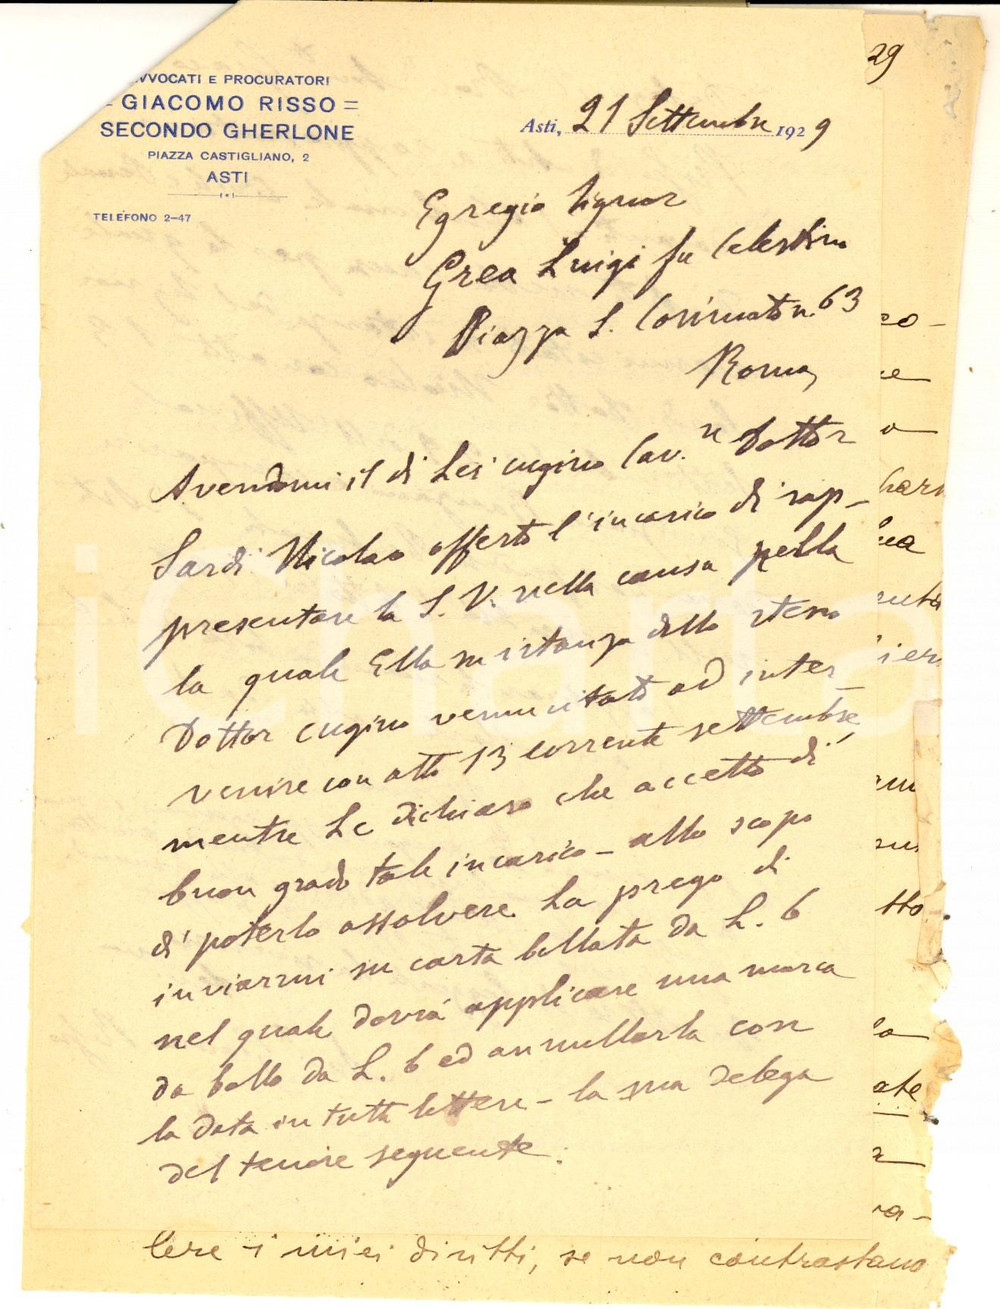 AVVOCATI E PROCURATORI
= GIACOMO RISSO =
SECONDO GHERLONE
PIAZZA CASTIGLIANO, 2
ASTI
TELEFONO 2-47
Asti, 21 Settembre 1929
Egregio Signor
Grea Luigi fu Celestino
Piazza S. n. 63
Roma
Avendomi il di Lei cugino Cav. Dottor
Sardi Nicolao offerto l'incarico di rap-
presentare la S. V. nella causa nella
la quale Ella su istanza dello stesso
Dottor cugino venne citato ad inter-
venire con atto 13 corrente settembre,
mentre Le dichiaro che accetto di
buon grado tale incarico - allo scopo
di poterlo assolvere La prego di
inviarmi su carta bollata da L. 6
nel quale dovrà applicare una marca
da bollo da L. 6 ed annullarla con
la data in tutte lettere - la sua delega
del tenore seguente:
lere i miei diritti, se non contrastano
29
iCharta